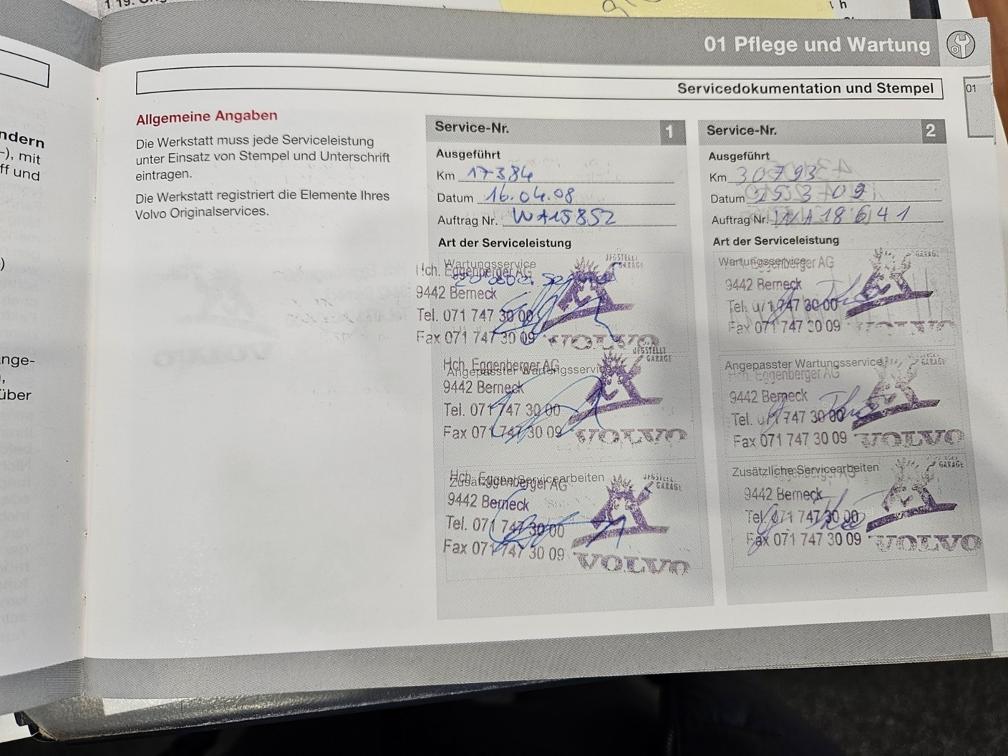 01 Pflege und Wartung
Servicedokumentation und Stempel
01
ndern
-), mit
ff und
)
nge-
,
über
Allgemeine Angaben
Die Werkstatt muss jede Serviceleistung
unter Einsatz von Stempel und Unterschrift
eintragen.
Die Werkstatt registriert die Elemente Ihres
Volvo Originalservices.
Service-Nr. 1
Ausgeführt
Km 17384
Datum 16.04.08
Auftrag Nr. WA15852
Art der Serviceleistung
Wartungsservice
Hch. Eggenberger AG
9442 Berneck
Tel. 071 747 30 00
Fax 071 747 30 09
VOLVO
Hch. Eggenberger AG
Angepasster Wartungsservice
9442 Berneck
Tel. 071 747 30 00
Fax 071 747 30 09
VOLVO
Hch. Eggenberger AG
Zusätzliche Servicearbeiten
9442 Berneck
Tel. 071 747 30 00
Fax 071 747 30 09
VOLVO
Service-Nr. 2
Ausgeführt
Km 30793
Datum 25 3 09
Auftrag Nr. WA18641
Art der Serviceleistung
Wartungsservice
Eggenberger AG
9442 Berneck
Tel. 071 747 30 00
Fax 071 747 30 09
VOLVO
Angepasster Wartungsservice
Hch. Eggenberger AG
9442 Berneck
Tel. 071 747 30 00
Fax 071 747 30 09
VOLVO
Zusätzliche Servicearbeiten
9442 Berneck
Tel. 071 747 30 00
Fax 071 747 30 09
VOLVO